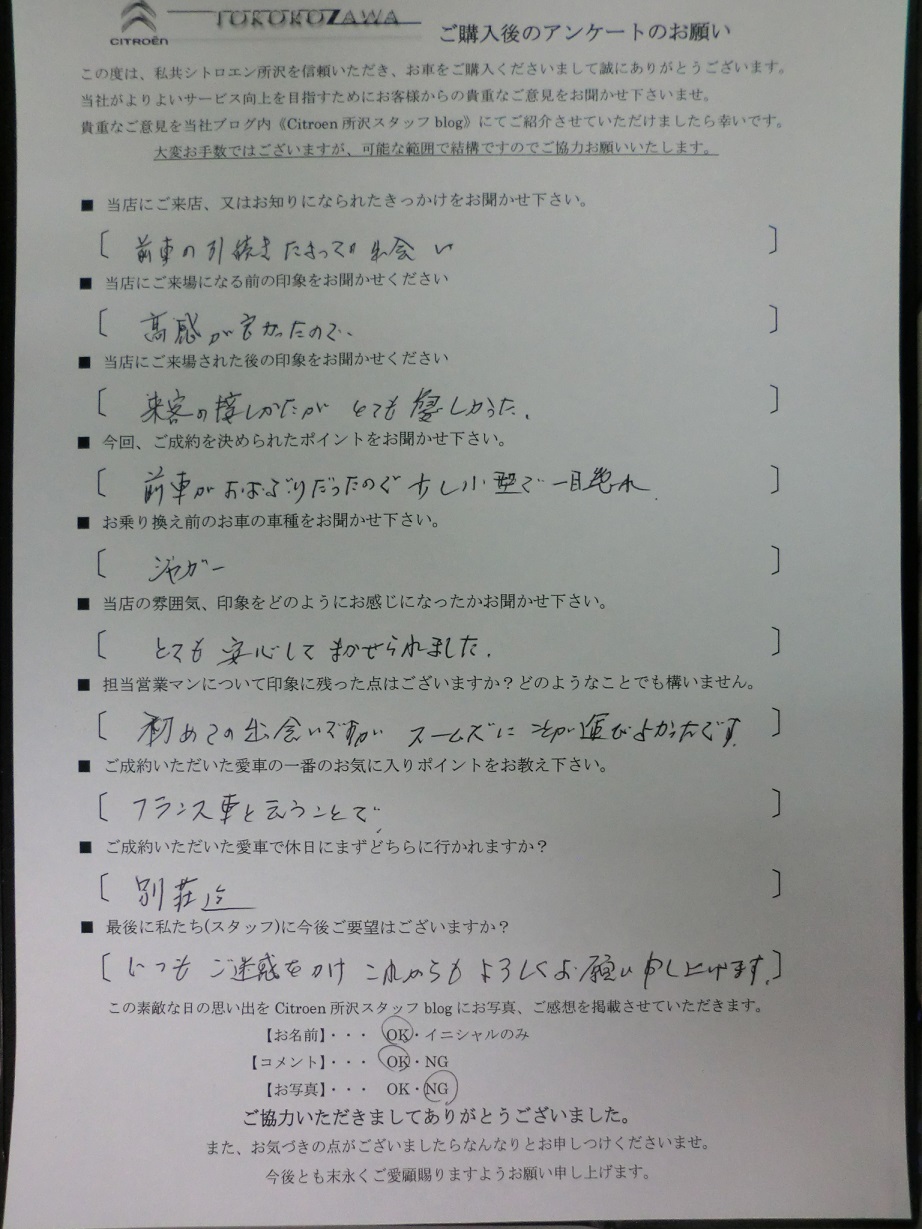 CITROËN
TOKOROZAWA
ご購入後のアンケートのお願い
この度は、私共シトロエン所沢を信頼いただき、お車をご購入くださいまして誠にありがとうございます。
当社がよりよいサービス向上を目指すためにお客様からの貴重なご意見をお聞かせ下さいませ。
貴重なご意見を当社ブログ内《Citroen 所沢スタッフ blog》にてご紹介させていただけましたら幸いです。
大変お手数ではございますが、可能な範囲で結構ですのでご協力お願いいたします。
■ 当店にご来店、又はお知りになられたきっかけをお聞かせ下さい。
〔 前車の引続き 出会い 〕
■ 当店にご来場になる前の印象をお聞かせください
〔 高感が良かったので、 〕
■ 当店にご来場された後の印象をお聞かせください
〔 来客の接しかたが とても優しかった. 〕
■ 今回、ご成約を決められたポイントをお聞かせ下さい。
〔 前車がおおぶりだったので 少し小型で一目惚れ. 〕
■ お乗り換え前のお車の車種をお聞かせ下さい。
〔 ジャガー 〕
■ 当店の雰囲気、印象をどのようにお感じになったかお聞かせ下さい。
〔 とても 安心して まかせられました. 〕
■ 担当営業マンについて印象に残った点はございますか？どのようなことでも構いません。
〔 初めての出会いですが スームズに ことが運びよかったです. 〕
■ ご成約いただいた愛車の一番のお気に入りポイントをお教え下さい。
〔 フランス車と云うことで 〕
■ ご成約いただいた愛車で休日にまずどちらに行かれますか？
〔 別荘迄 〕
■ 最後に私たち(スタッフ)に今後ご要望はございますか？
〔 いつも ご迷惑をかけ これからも よろしくお願い申し上げます. 〕
この素敵な日の思い出を Citroen 所沢スタッフ blog にお写真、ご感想を掲載させていただきます。
【お名前】・・・ OK・イニシャルのみ
【コメント】・・・ OK・NG
【お写真】・・・ OK・NG
ご協力いただきましてありがとうございました。
また、お気づきの点がございましたらなんなりとお申しつけくださいませ。
今後とも末永くご愛顧賜りますようお願い申し上げます。